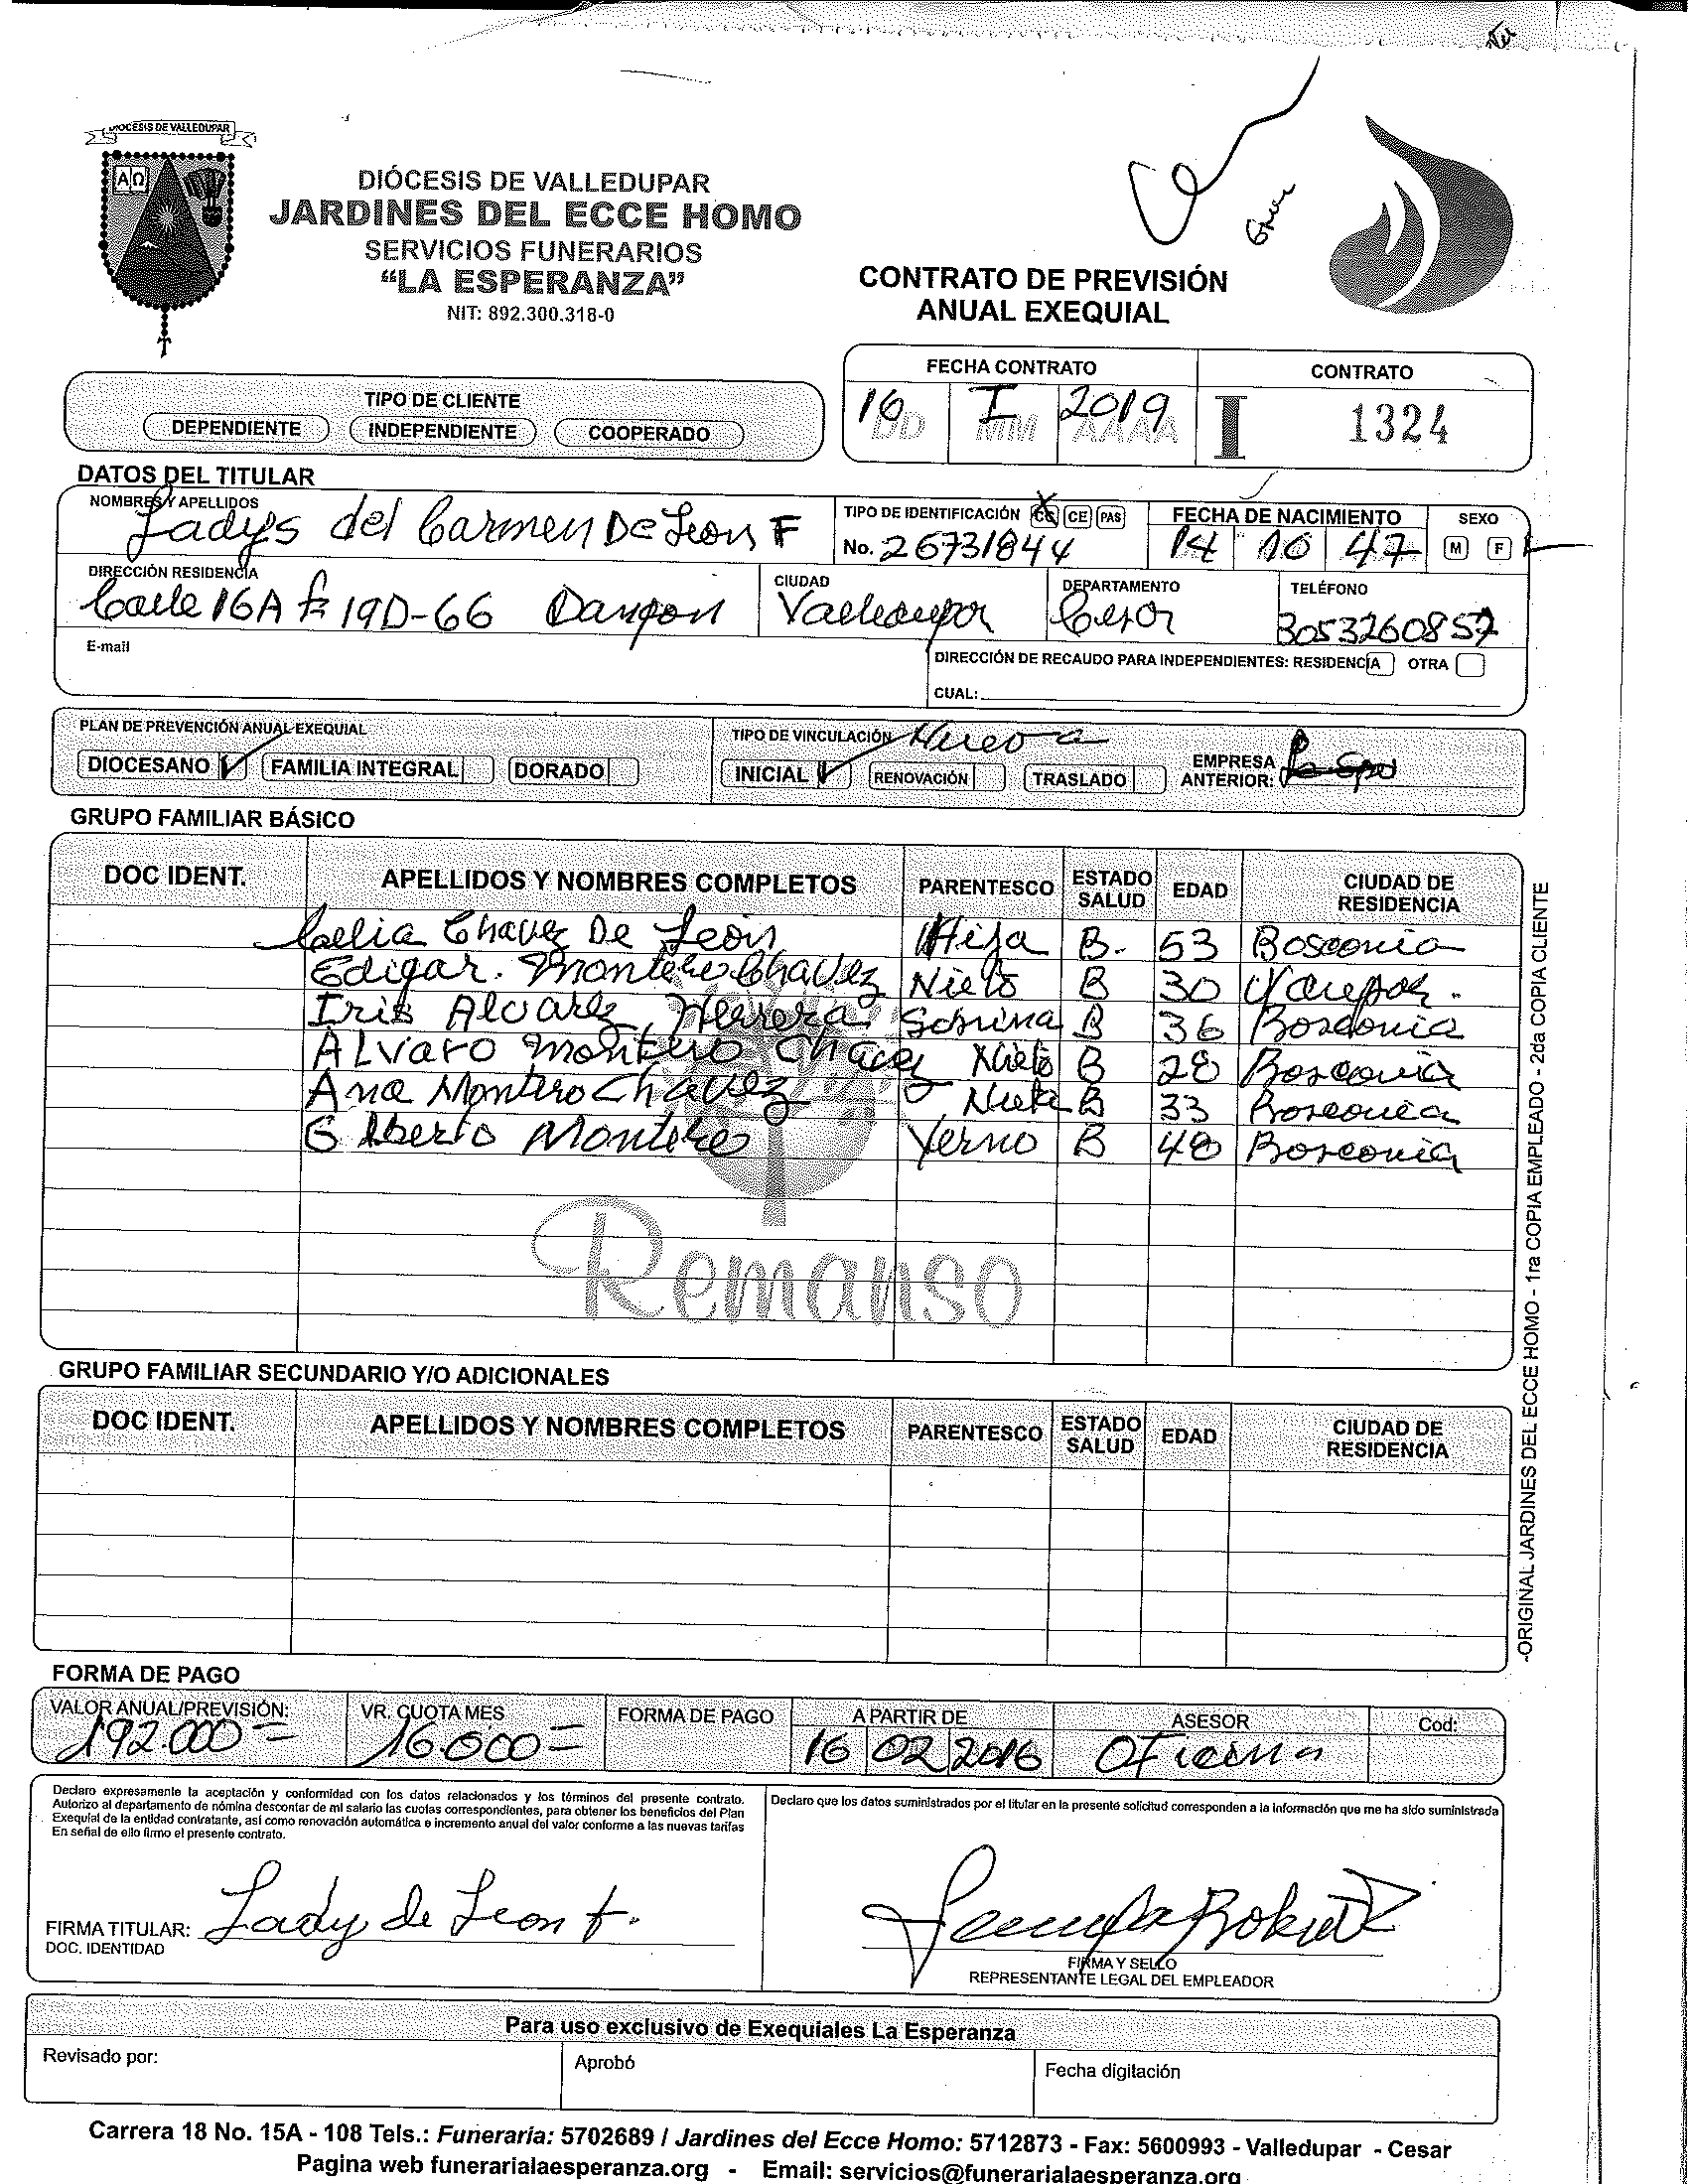 DIOCESIS DE VALLEDUPAR
A Ω
DIÓCESIS DE VALLEDUPAR
JARDINES DEL ECCE HOMO
SERVICIOS FUNERARIOS
“LA ESPERANZA”
NIT: 892.300.318-0
CONTRATO DE PREVISIÓN
ANUAL EXEQUIAL
FECHA CONTRATO CONTRATO
16 I 2019 I 1324
DD MM AAAA
TIPO DE CLIENTE
DEPENDIENTE INDEPENDIENTE COOPERADO
DATOS DEL TITULAR
NOMBRES Y APELLIDOS TIPO DE IDENTIFICACIÓN CC CE PAS FECHA DE NACIMIENTO SEXO
Ladys del Carmen De Leon F No. 26731844 14 10 47 M F
DIRECCIÓN RESIDENCIA CIUDAD DEPARTAMENTO TELÉFONO
Calle 16A # 19D-66 Dangon Valledupar Cesar 3053260857
E-mail DIRECCIÓN DE RECAUDO PARA INDEPENDIENTES: RESIDENCIA OTRA
CUAL:
PLAN DE PREVENCIÓN ANUAL EXEQUIAL TIPO DE VINCULACIÓN Nueva
DIOCESANO FAMILIA INTEGRAL DORADO INICIAL RENOVACIÓN TRASLADO EMPRESA ANTERIOR:
GRUPO FAMILIAR BÁSICO
DOC IDENT. APELLIDOS Y NOMBRES COMPLETOS PARENTESCO ESTADO SALUD EDAD CIUDAD DE RESIDENCIA
Celia Chavez De León Hija B. 53 Bosconia
Edigar. Montero Chavez Nieto B 30 V/dupar.
Iris Alvarez Herrera Sobrina B 36 Bosconia
Alvaro Montero Chavez Nieto B 28 Bosconia
Ana Montero Chavez Nieta B 33 Bosconia
Gilberto Montero Yerno B 48 Bosconia
Remanso
GRUPO FAMILIAR SECUNDARIO Y/O ADICIONALES
DOC IDENT. APELLIDOS Y NOMBRES COMPLETOS PARENTESCO ESTADO SALUD EDAD CIUDAD DE RESIDENCIA
-ORIGINAL JARDINES DEL ECCE HOMO - 1ra COPIA EMPLEADO - 2da COPIA CLIENTE
FORMA DE PAGO
VALOR ANUAL/PREVISIÓN: VR. CUOTA MES FORMA DE PAGO A PARTIR DE ASESOR Cod:
192.000= 16.000= 16 02 2016 Oficina
Declaro expresamente la aceptación y conformidad con los datos relacionados y los términos del presente contrato.
Autorizo al departamento de nómina descontar de mi salario las cuotas correspondientes, para obtener los beneficios del Plan
Exequial de la entidad contratante, así como renovación automática e incremento anual del valor conforme a las nuevas tarifas
En señal de ello firmo el presente contrato.
Declaro que los datos suministrados por el titular en la presente solicitud corresponden a la información que me ha sido suministrada
FIRMA TITULAR: Lady de Leon f.
DOC. IDENTIDAD
FIRMA Y SELLO
REPRESENTANTE LEGAL DEL EMPLEADOR
Para uso exclusivo de Exequiales La Esperanza
Revisado por: Aprobó Fecha digitación
Carrera 18 No. 15A - 108 Tels.: Funeraria: 5702689 / Jardines del Ecce Homo: 5712873 - Fax: 5600993 - Valledupar - Cesar
Pagina web funerarialaesperanza.org - Email: servicios@funerarialaesperanza.org